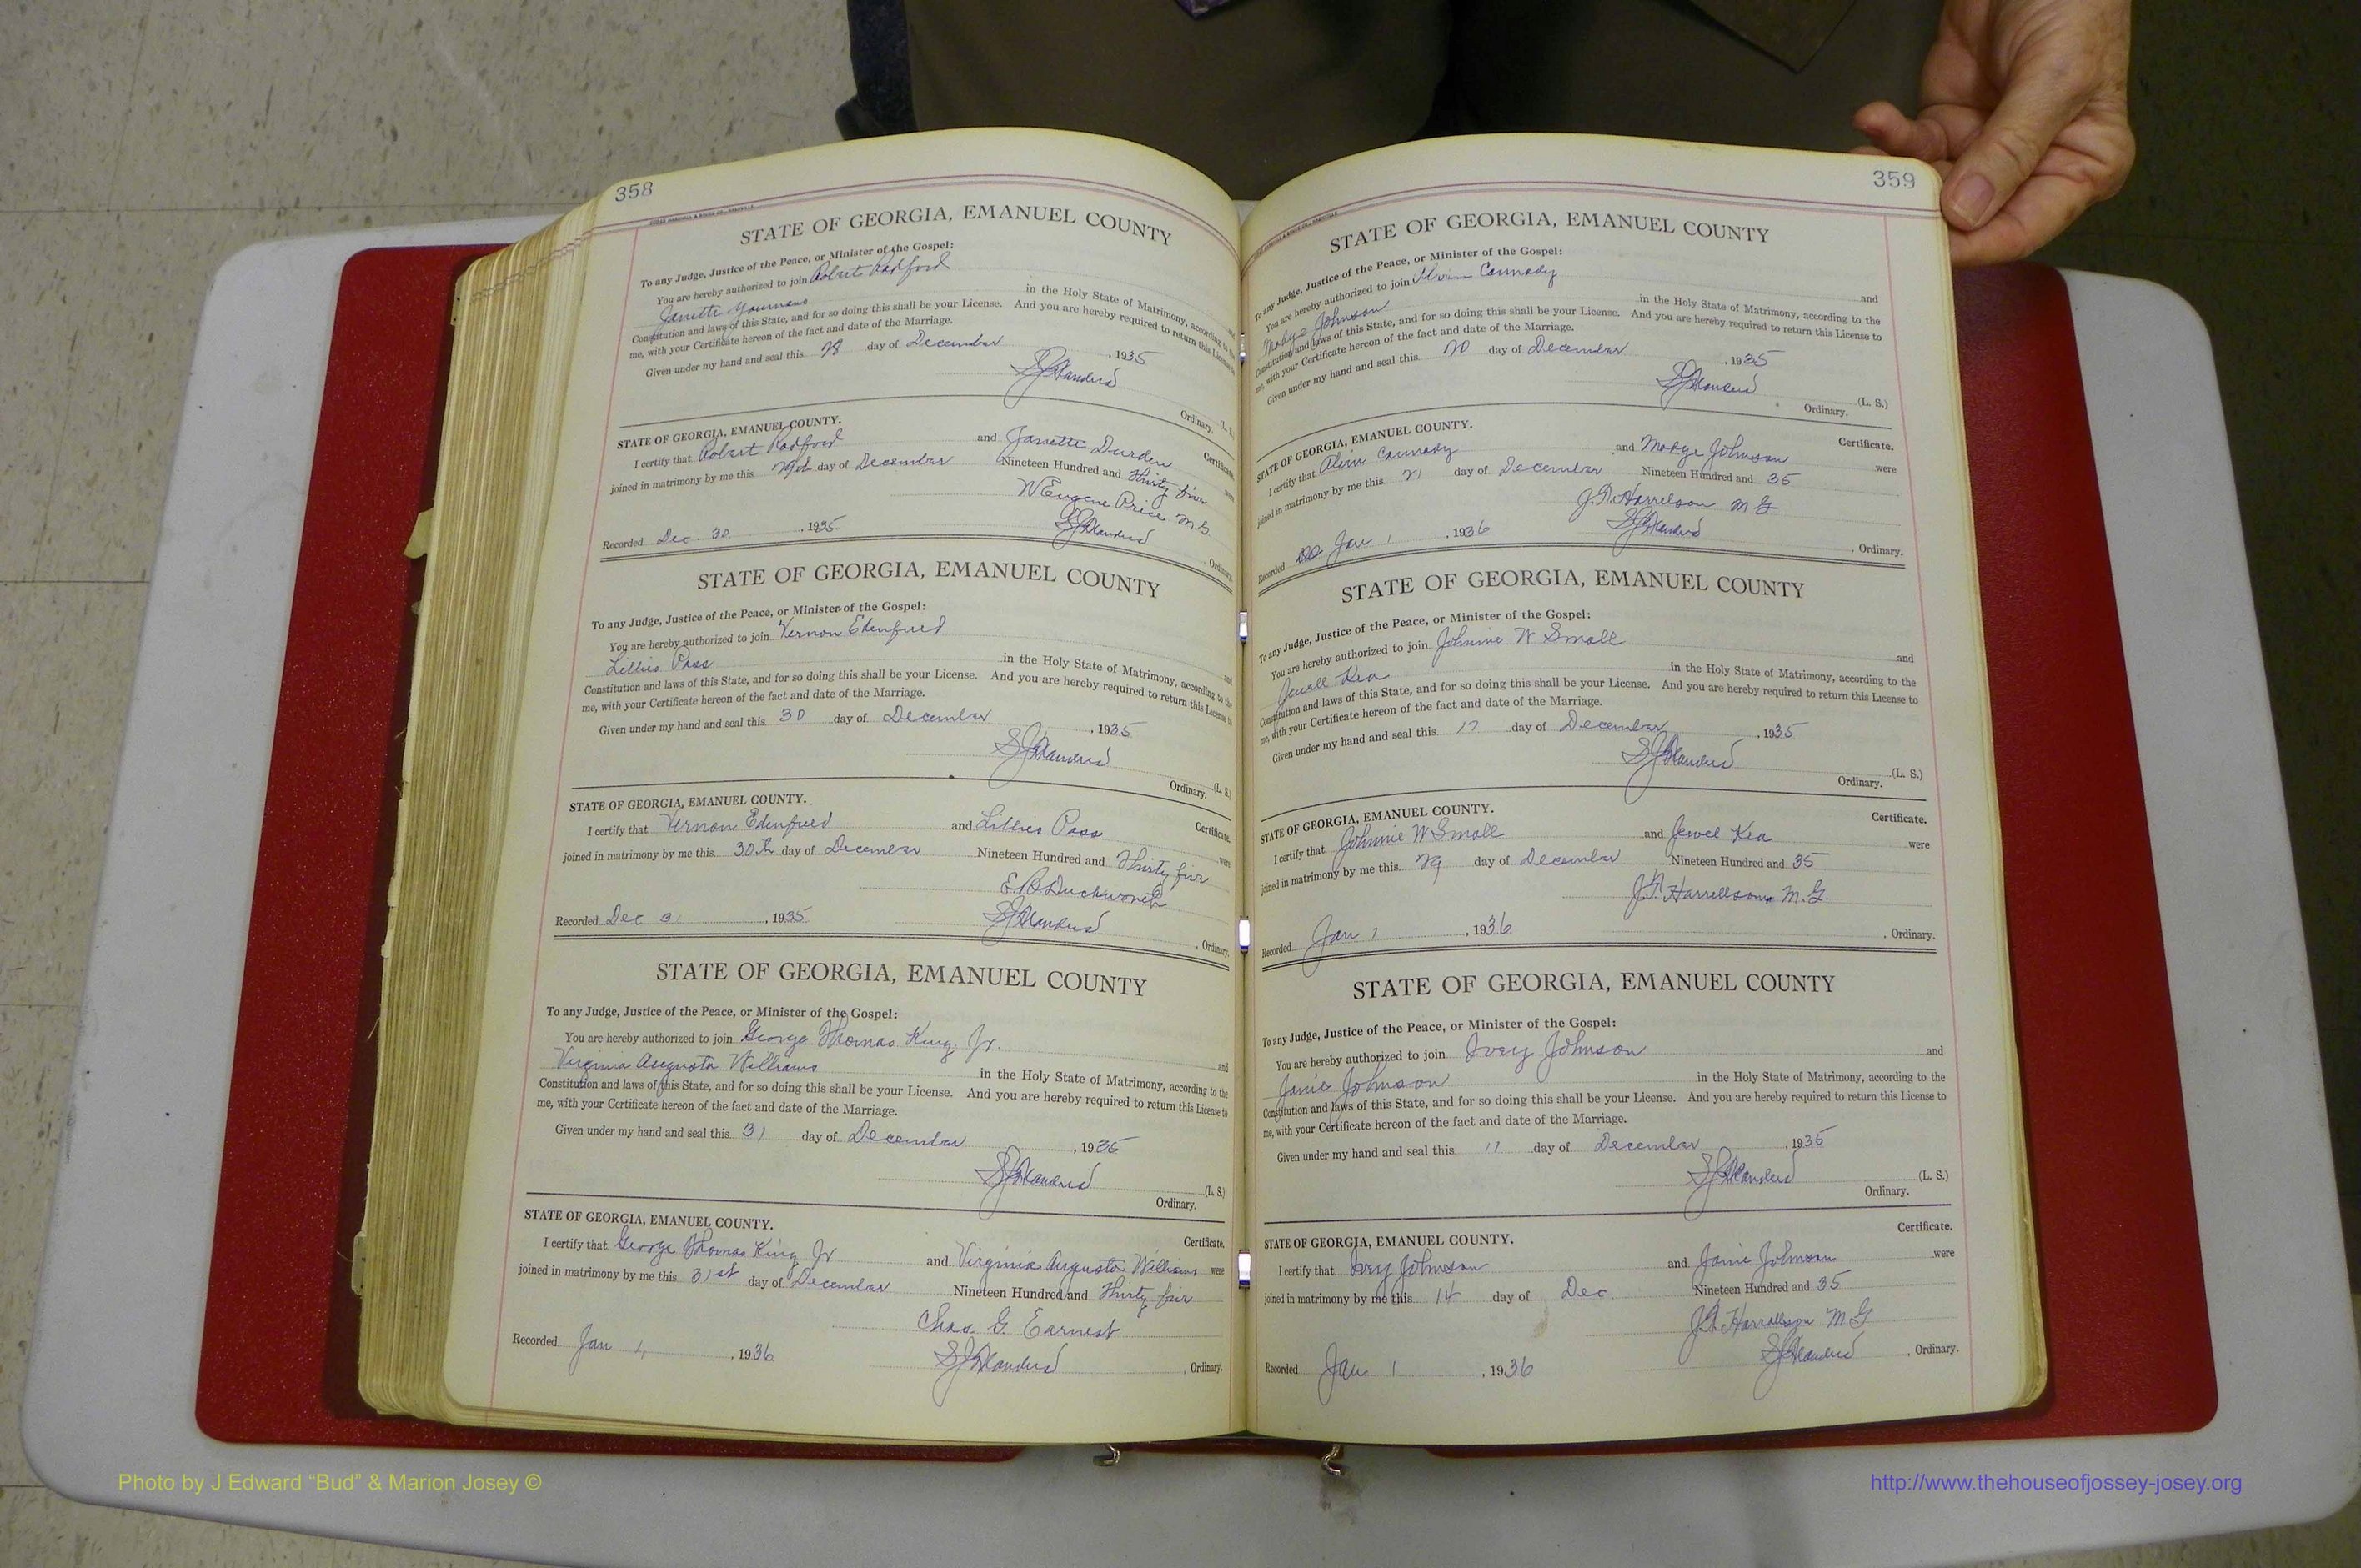 358
STATE OF GEORGIA, EMANUEL COUNTY
To any Judge, Justice of the Peace, or Minister of the Gospel:
You are hereby authorized to join Robert Radford and
Janette Youmans in the Holy State of Matrimony, according to the
Constitution and laws of this State, and for so doing this shall be your License. And you are hereby required to return this License to
me, with your Certificate hereon of the fact and date of the Marriage.
Given under my hand and seal this 28 day of December, 1935
(L. S.)
Ordinary.
STATE OF GEORGIA, EMANUEL COUNTY.
Certificate.
I certify that Robert Radford and Janette Durden were
joined in matrimony by me this 29th day of December Nineteen Hundred and Thirty five
W Eugene Price M.G.
Recorded Dec. 30, 1935
Ordinary.
STATE OF GEORGIA, EMANUEL COUNTY
To any Judge, Justice of the Peace, or Minister of the Gospel:
You are hereby authorized to join Vernon Edenfield and
Lillies Pass in the Holy State of Matrimony, according to the
Constitution and laws of this State, and for so doing this shall be your License. And you are hereby required to return this License to
me, with your Certificate hereon of the fact and date of the Marriage.
Given under my hand and seal this 30 day of December, 1935
(L. S.)
Ordinary.
STATE OF GEORGIA, EMANUEL COUNTY.
Certificate.
I certify that Vernon Edenfield and Lillies Pass were
joined in matrimony by me this 30th day of December Nineteen Hundred and Thirty five
E B Duckworth
Recorded Dec 31, 1935
, Ordinary.
STATE OF GEORGIA, EMANUEL COUNTY
To any Judge, Justice of the Peace, or Minister of the Gospel:
You are hereby authorized to join George Thomas King Jr. and
Virginia Augusta Williams in the Holy State of Matrimony, according to the
Constitution and laws of this State, and for so doing this shall be your License. And you are hereby required to return this License to
me, with your Certificate hereon of the fact and date of the Marriage.
Given under my hand and seal this 31 day of December, 1935
(L. S.)
Ordinary.
STATE OF GEORGIA, EMANUEL COUNTY.
Certificate.
I certify that George Thomas King Jr and Virginia Augusta Williams were
joined in matrimony by me this 31st day of December Nineteen Hundred and Thirty five
Chas. G. Earnest
Recorded Jan 1, 1936
, Ordinary.
359
STATE OF GEORGIA, EMANUEL COUNTY
To any Judge, Justice of the Peace, or Minister of the Gospel:
You are hereby authorized to join Alvin Cannady and
Madge Johnson in the Holy State of Matrimony, according to the
Constitution and laws of this State, and for so doing this shall be your License. And you are hereby required to return this License to
me, with your Certificate hereon of the fact and date of the Marriage.
Given under my hand and seal this 20 day of December, 1935
(L. S.)
Ordinary.
STATE OF GEORGIA, EMANUEL COUNTY.
Certificate.
I certify that Alvin Cannady and Madge Johnson were
joined in matrimony by me this 21 day of December Nineteen Hundred and 35
Harrelson M G
Recorded Jan 1, 1936
, Ordinary.
STATE OF GEORGIA, EMANUEL COUNTY
To any Judge, Justice of the Peace, or Minister of the Gospel:
You are hereby authorized to join Johnnie W Small and
Jewell Kea in the Holy State of Matrimony, according to the
Constitution and laws of this State, and for so doing this shall be your License. And you are hereby required to return this License to
me, with your Certificate hereon of the fact and date of the Marriage.
Given under my hand and seal this 17 day of December, 1935
(L. S.)
Ordinary.
STATE OF GEORGIA, EMANUEL COUNTY.
Certificate.
I certify that Johnnie W Small and Jewel Kea were
joined in matrimony by me this 29 day of December Nineteen Hundred and 35
Harrellson M.G.
Recorded Jan 1, 1936
, Ordinary.
STATE OF GEORGIA, EMANUEL COUNTY
To any Judge, Justice of the Peace, or Minister of the Gospel:
You are hereby authorized to join Ivey Johnson and
Janie Johnson in the Holy State of Matrimony, according to the
Constitution and laws of this State, and for so doing this shall be your License. And you are hereby required to return this License to
me, with your Certificate hereon of the fact and date of the Marriage.
Given under my hand and seal this 11 day of December, 1935
(L. S.)
Ordinary.
STATE OF GEORGIA, EMANUEL COUNTY.
Certificate.
I certify that Ivey Johnson and Janie Johnson were
joined in matrimony by me this 14 day of Dec. Nineteen Hundred and 35
Harrellson M G
Recorded Jan 1, 1936
, Ordinary.
Photo by J Edward “Bud” & Marion Josey ©
http://www.thehouseofjossey-josey.org